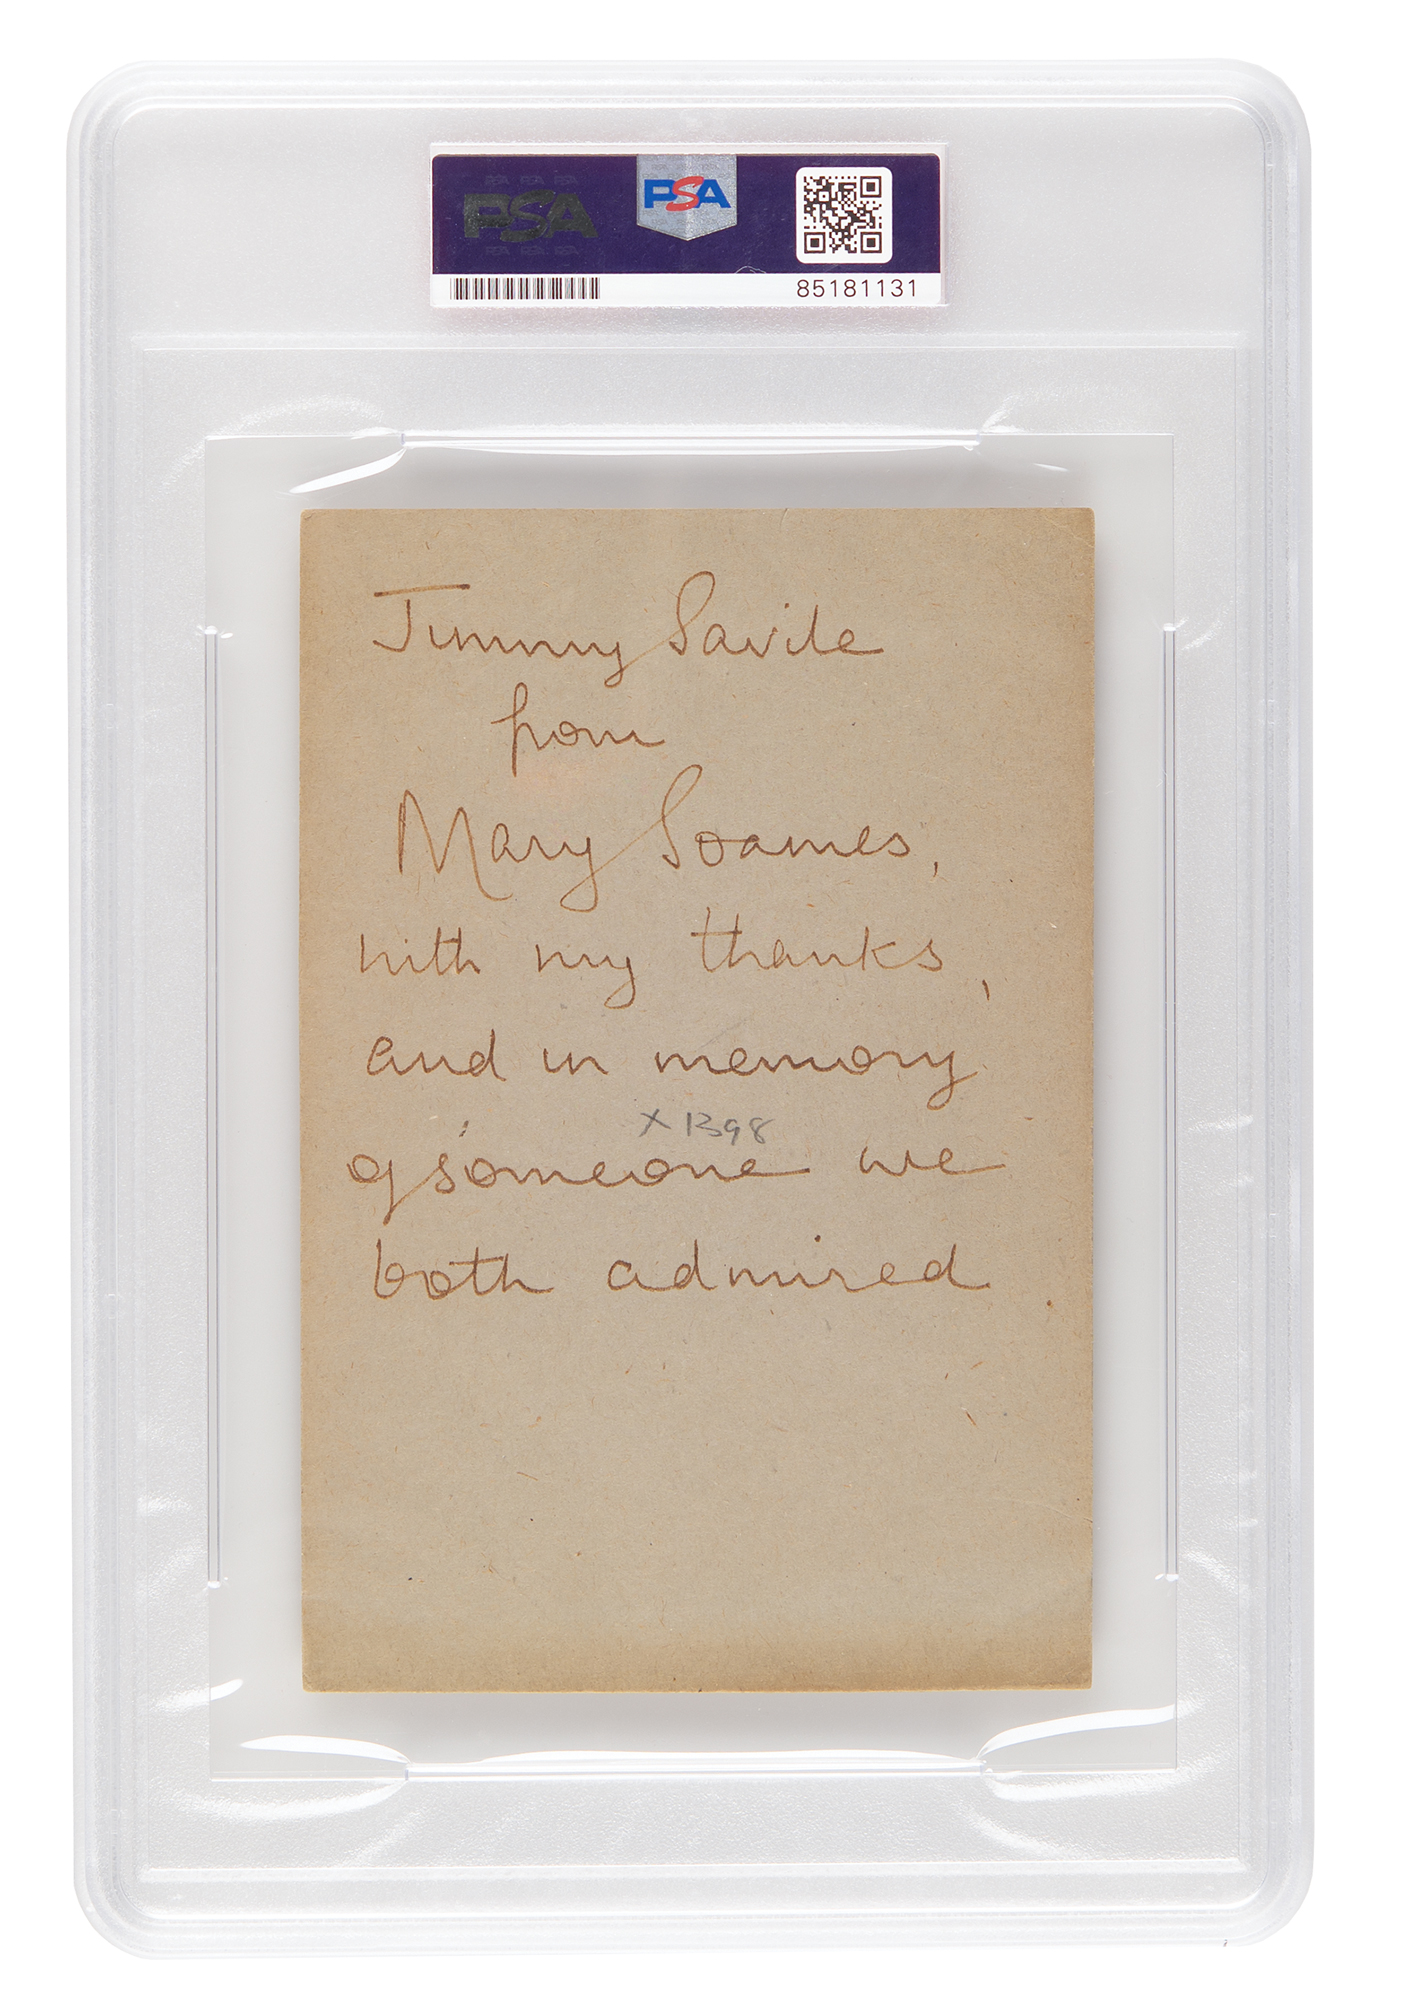 PSA PSA PSA
PSA
PSA PSA PSA
PSA
85181131
Jimmy Savile
from
Mary Soames,
with my thanks,
and in memory
x 1398
of someone we
both admired